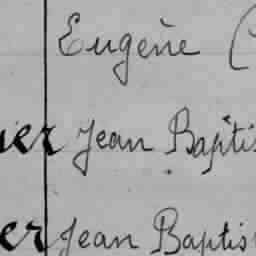 Eugène (
er Jean Baptis
er Jean Baptis